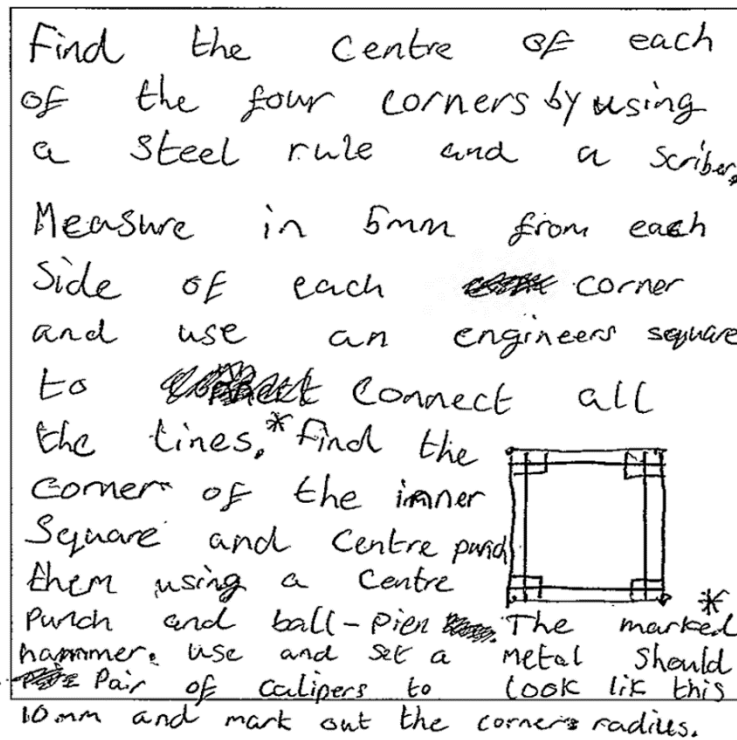 Find the centre of each
of the four corners by using
a steel rule and a scriber.
Measure in 5mm from each
side of each corner
and use an engineers square
to connect all
the lines.* Find the
corner of the inner
square and centre punch
them using a centre
punch and ball-pien
hammer. Use and set a
pair of calipers to
10mm and mark out the corners radius.
* The marked
metal should
look lik this